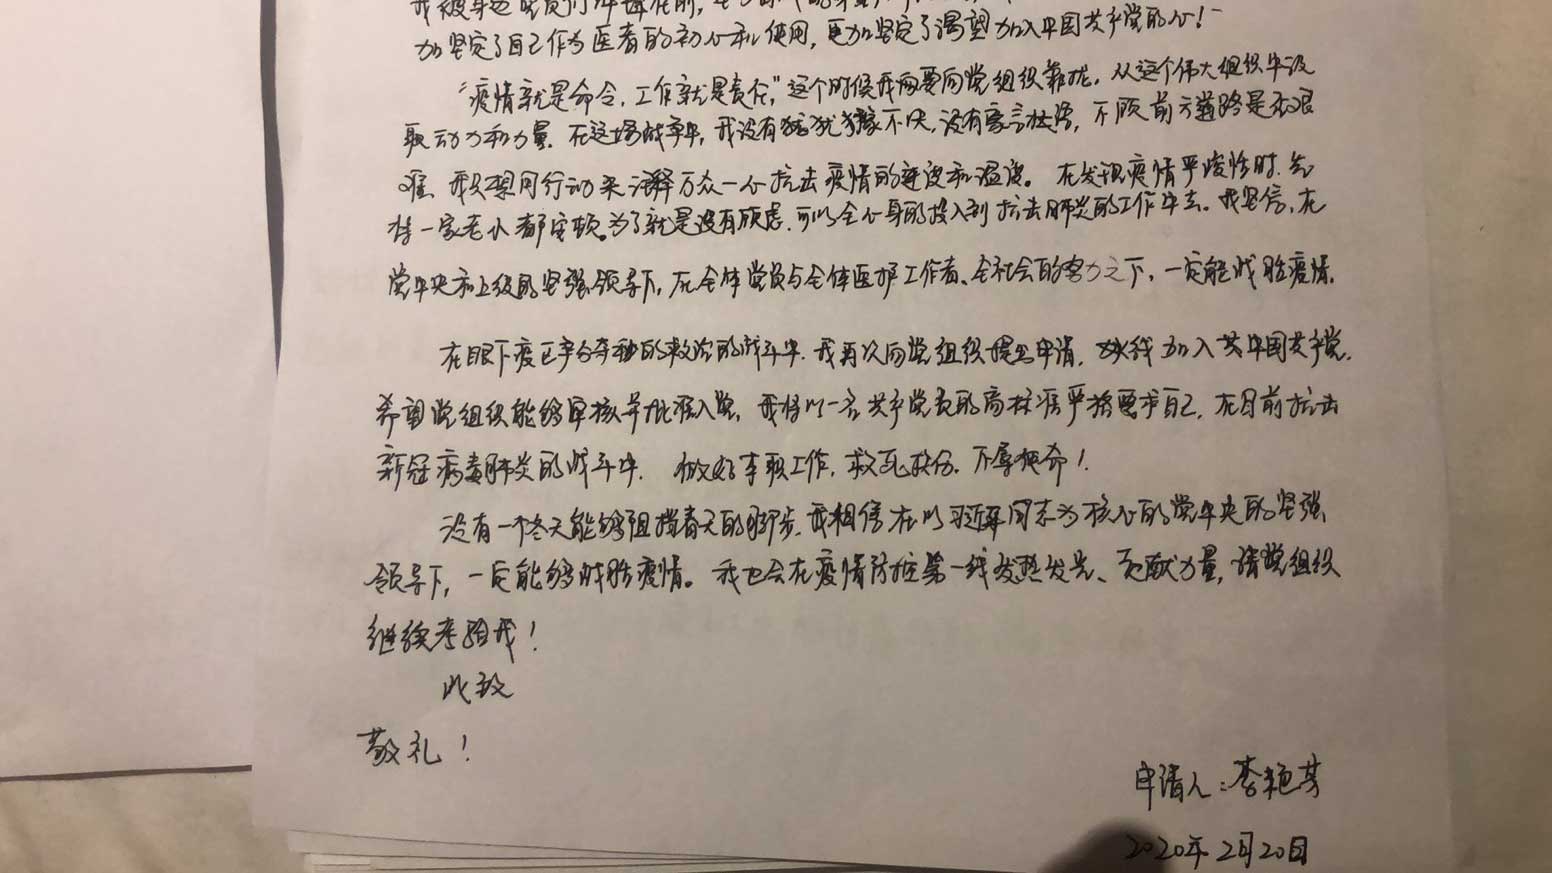 我被身边党员们冲锋在前，
加坚定了自己作为医者的初心和使用，更加坚定了渴望加入中国共产党的心！
“疫情就是命令，工作就是责任，”这个时候我需要向党组织靠拢，从这个伟大组织中汲
取动力和力量。在这场战争中，我没有犹犹豫不决，没有豪言壮语，不顾前方道路是否艰
难，我只想用行动来注释万众一心抗击疫情的速度和温度。在发现疫情严峻性时，先
将一家老小都安顿。为了就是没有顾虑，可以全心身的投入到抗击肺炎的工作中去。我坚信，在
党中央和上级的坚强领导下，在全体党员与全体医护工作者、全社会的努力之下，一定能战胜疫情。
在眼下疫区争分夺秒的救治的战斗中，我再次向党组织提出申请，火线加入共中国共产党，
希望党组织能够审核并批准入党，我将以一名共产党员的高标准严格要求自己，在目前抗击
新冠病毒肺炎的战斗中，做好本职工作，救死扶伤，不辱使命！
没有一个冬天能够阻挡春天的脚步，我相信在以习近平同志为核心的党中央的坚强
领导下，一定能够战胜疫情。我也会在疫情防控第一线发热发光、贡献力量，请党组织
继续考验我！
此致
敬礼！
申请人：李艳芳
2020年2月20日